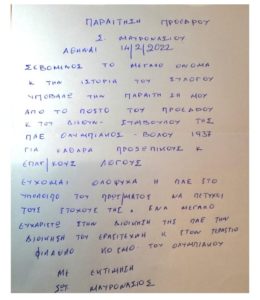 ΠΑΡΑΙΤΗΣΗ ΠΡΟΕΔΡΟΥ
Σ. ΜΑΥΡΟΝΑΣΙΟΥ
ΑΘΗΝΑΙ 14/2/2022
ΣΕΒΟΜΕΝΟΣ ΤΟ ΜΕΓΑΛΟ ΟΝΟΜΑ
Κ ΤΗΝ ΙΣΤΟΡΙΑ ΤΟΥ ΣΥΛΟΓΟΥ
ΥΠΟΒΑΛΩ ΤΗΝ ΠΑΡΑΙΤΗΣΗ ΜΟΥ
ΑΠΟ ΤΟ ΠΟΣΤΟ ΤΟΥ ΠΡΟΕΔΡΟΥ
Κ ΤΟΥ ΔΙΕΥΘΥΝ- ΣΥΜΒΟΥΛΟΥ ΤΗΣ
ΠΑΕ ΟΛΥΜΠΙΑΚΟΣ - ΒΟΛΟΥ 1937
ΓΙΑ ΚΑΘΑΡΑ ΠΡΟΣΩΠΙΚΟΥΣ Κ
ΕΠΑΓ/ΚΟΥΣ ΛΟΓΟΥΣ
ΕΥΧΟΜΑΙ ΟΛΟΨΥΧΑ Η ΠΑΕ ΣΤΟ
ΥΠΟΛΟΙΠΟ ΤΟΥ ΠΡΩΤ/ΜΑΤΟΣ ΝΑ ΠΕΤΥΧΕΙ
ΤΟΥΣ ΣΤΟΧΟΥΣ ΤΗΣ. ΕΝΑ ΜΕΓΑΛΟ
ΕΥΧΑΡΙΣΤΩ ΣΤΗΝ ΔΙΟΙΚΗΣΗ ΤΗΣ ΠΑΕ ΤΗΝ
ΔΙΟΙΚΗΣΗ ΤΟΥ ΕΡΑΣΙΤΕΧΝΗ Κ ΣΤΟΝ ΤΕΡΑΣΤΙΟ
ΦΙΛΑΘΛΟ ΚΟΣΜΟ ΤΟΥ ΟΛΥΜΠΙΑΚΟΥ
ΜΕ ΕΚΤΙΜΗΣΗ
ΣΩΤ. ΜΑΥΡΟΝΑΣΙΟΣ